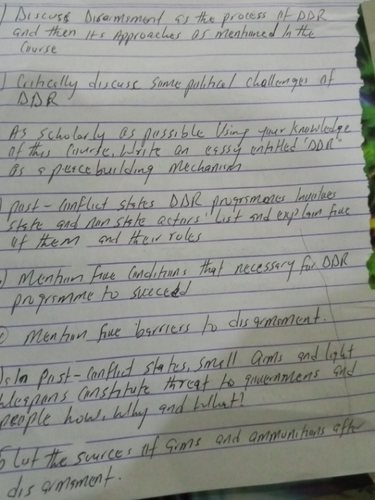 ) Discuss Disarmiment as the process of DDR
and then its Approaches as mentioned in the
Course
) Critically discuss some political challenges of
DDR
As scholarly as possible Using your knowledge
of this Course, Write an essay entitled "DDR"
as a peace building Mechanism
) post-conflict states DDR programmes involves
state and non state actors' List and explain five
of them and their roles
) Mention five Conditions that necessary for DDR
programme to succeed
) Mention five barriers to disarmament.
In post-conflict states, small arms and light
weapons constitute threat to governmens and
people how, Why and What?
List the sources of arms and ammunitions after
disarmament.